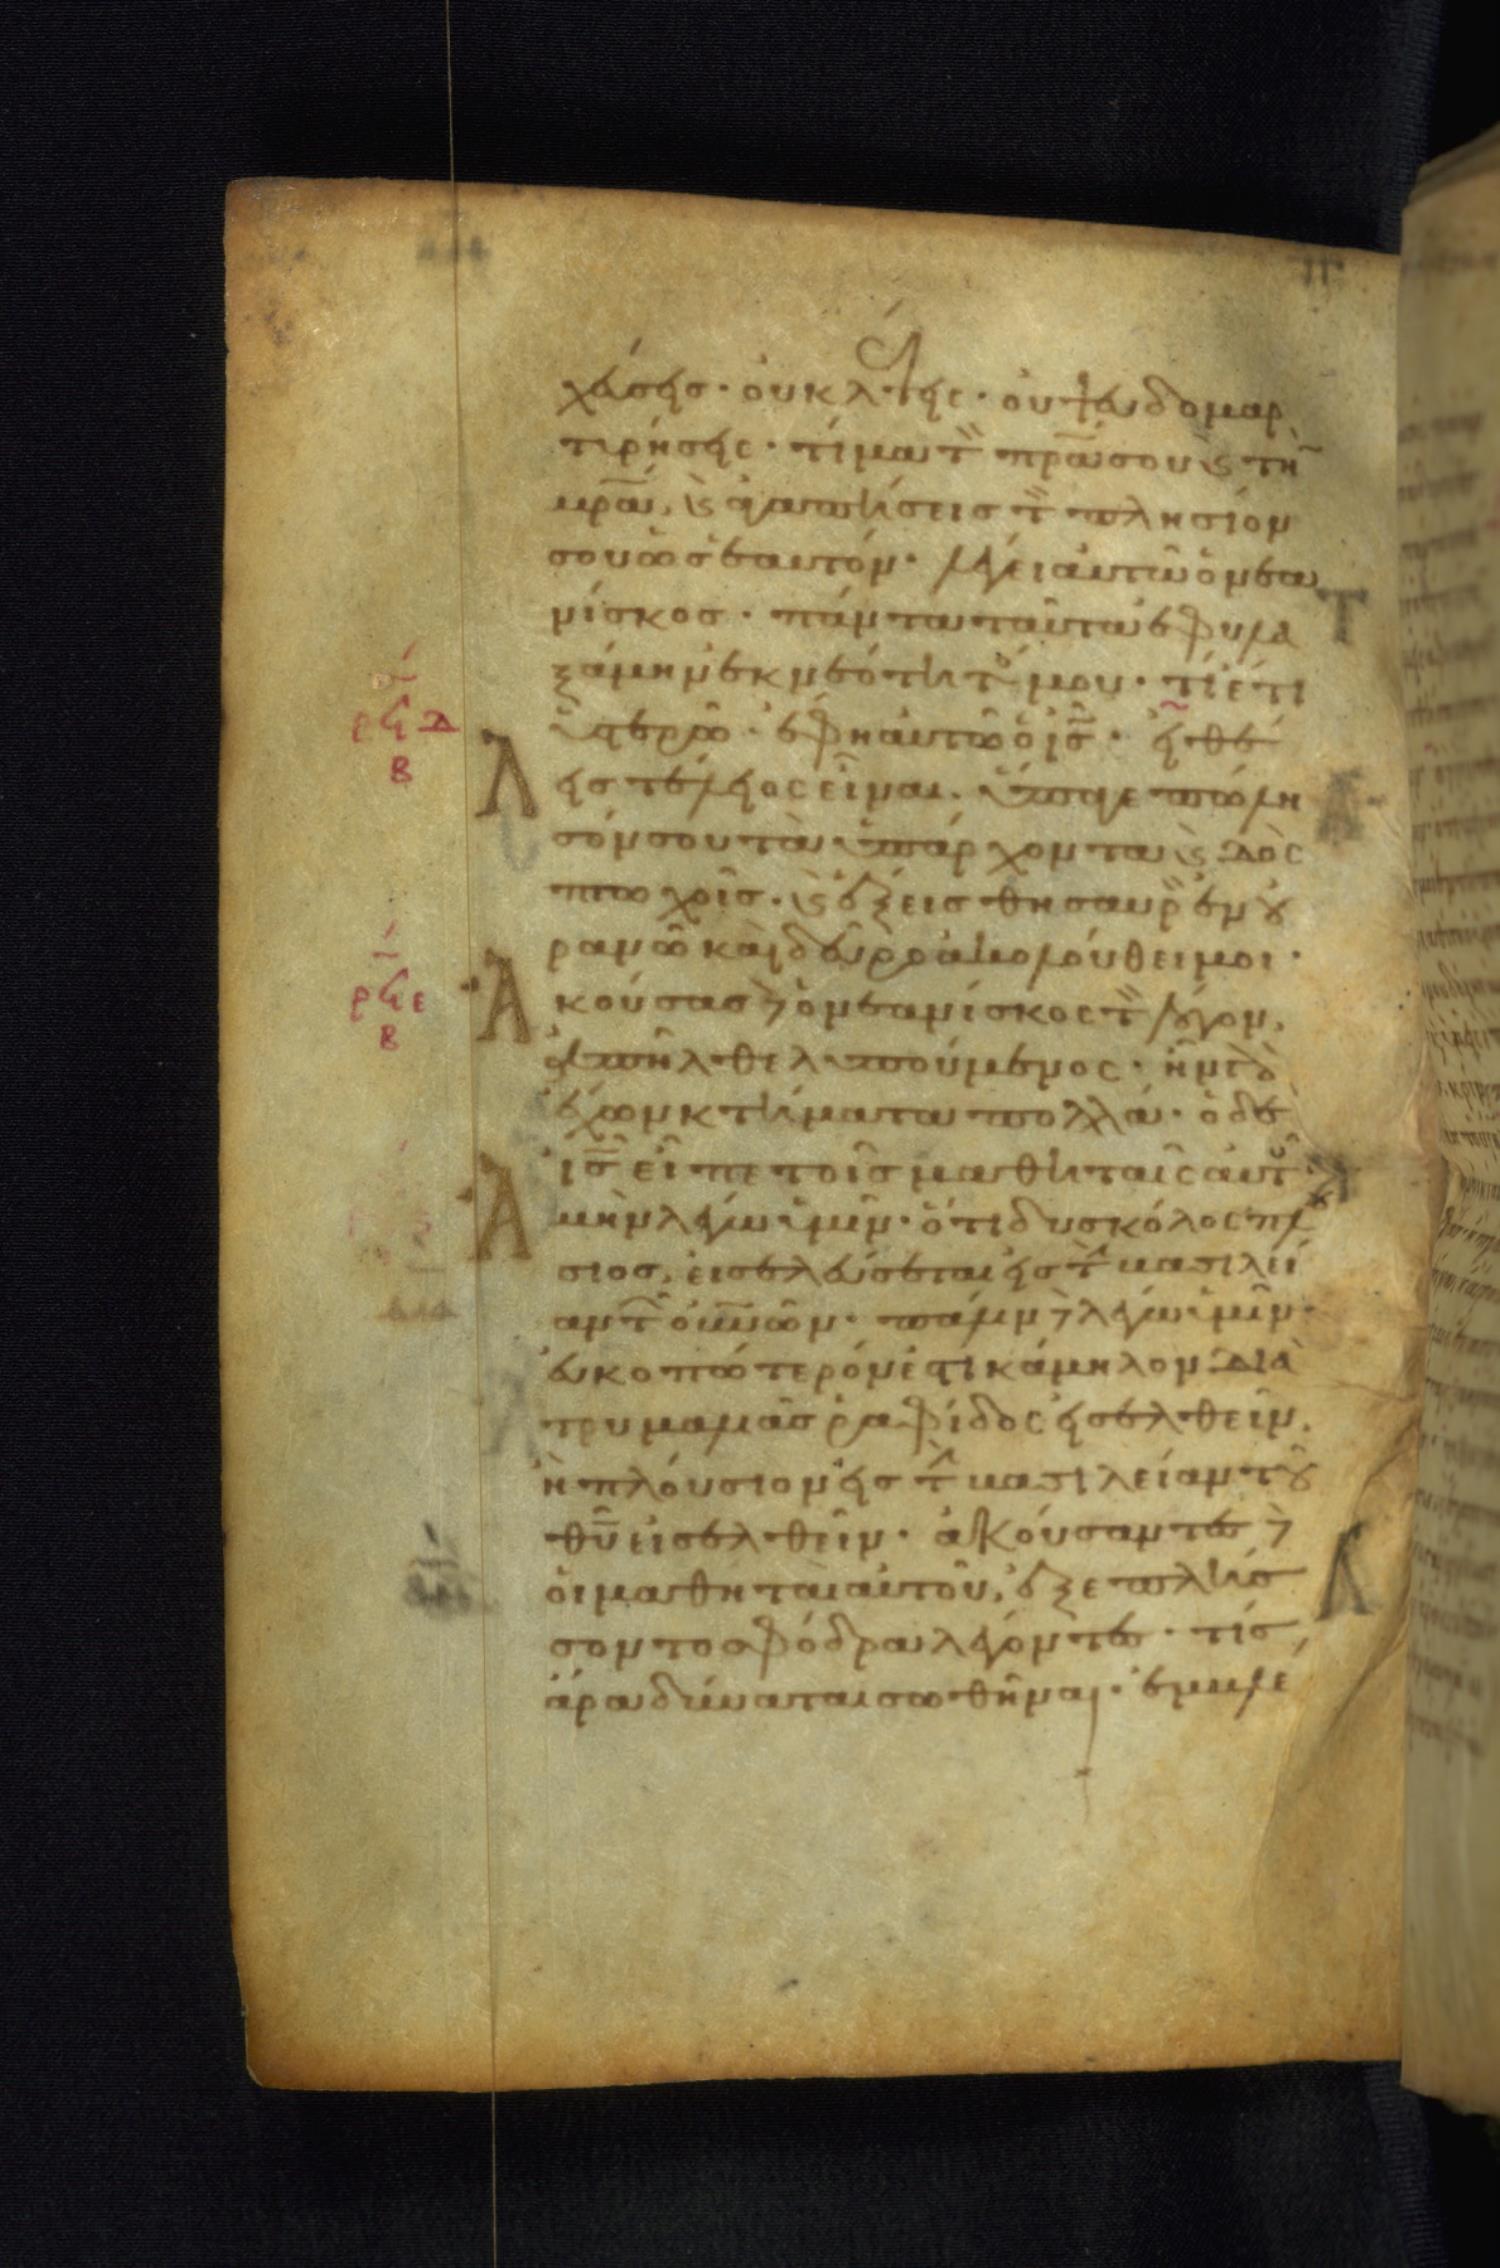 χεύσης· οὐ κλέψης· οὐ ψευδομαρ
τιρήσης· τίμα τ πρ̅α σου ϗ τη
μρ̅α, ϗ ἀγαπήσεις τ πλησίον
σου ὡς ἑαυτόν· λέγει αὐτῶ ὁ νεα
νίσκος· πάντα ταῦτα ἐφυλα
ξάμην ἐκ νεότητο μου· τί ἔτι
ὑστερῶ· ἔφη αὐτῶ ὁ ις̅· εἰ θέ
Λ εις τέλειος εἶναι, ὕπαγε πώλη
σόν σου τὰ ὑπάρχοντα ϗ δὸς
πτωχοῖς· ϗ ἕξεις θησαυρ ἐν ου
ρανῶ καὶ δεῦρο ἀκολούθει μοι·
Ἀ κούσας δὲ ὁ νεανίσκος τ λόγον,
ἀπῆλθε λυπούμενος· ἦν γὰρ
ἔχων κτήματα πολλά· ὁ δὲ
ις̅ εἶπε τοῖς μαθηταῖς αὐτοῦ·
Ἀ μὴν λέγω ὑμῖν· ὅτι δυσκόλος πλού
σιος, εἰσελεύσεται εἰς τ βασιλεί
αν τ οὐνῶν· πάλιν δὲ λέγω ὑμῖν·
εὐκοπώτερόν ἐστι κάμηλον διὰ
τρυμαλιᾶς ῥαφίδος εἰσελθεῖν,
ἢ πλούσιον εἰς τ βασιλείαν τοῦ
θυ̅ εἰσελθεῖν· ἀκούσαντες δὲ
οἱ μαθηταὶ αὐτοῦ, ἐξεπλήσ
σοντο σφόδρα λέγοντες· τίς
ἄρα δύναται σωθῆναι· ἐμβλέ
ρϟδ
β
ρϟε
β